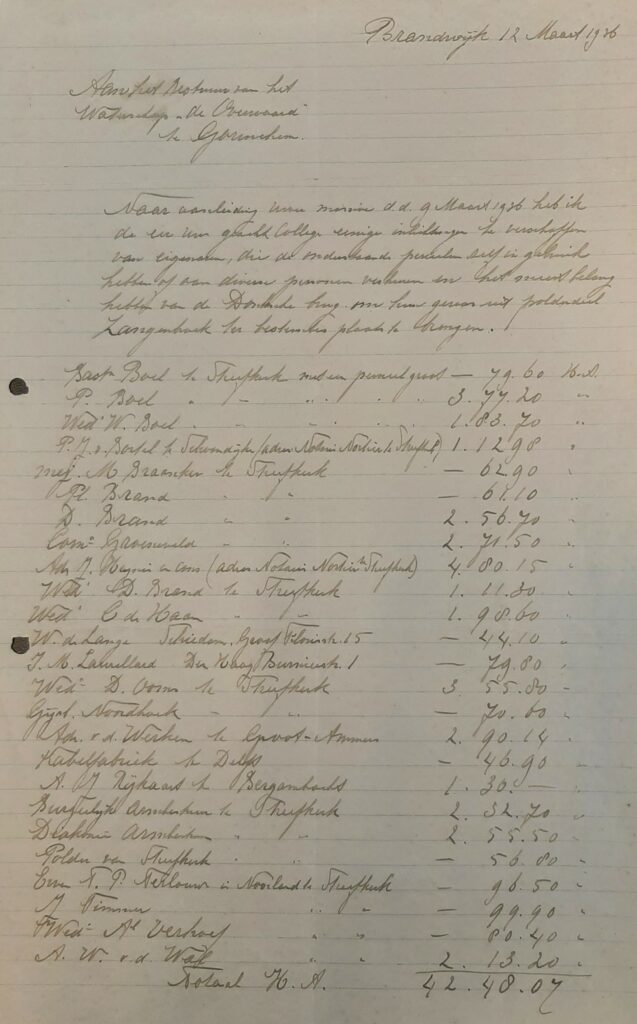 Brandwijk 12 Maart 1936
Aan het Bestuur van het
Waterschap "de Overwaard"
te Gorinchem.
Naar aanleiding uwer missive d.d. 9 Maart 1936 heb ik
de eer uw geacht College eenige inlichtingen te verschaffen
van eigenaren, die de onderstaande perceelen zelf in gebruik
hebben of aan diverse personen verhuren en het meest belang
hebben van de brug om hun gewas uit polderdeel
Langenbroek ter bestemder plaats te brengen.
Bast. Boel te Streefkerk met een perceel groot — 79.60 H.A.
P. Boel " " " " " 3.77.20 "
Wed. W. Boel " " " " 1.83.70 "
P. J. v. te (adres Notaris te Streefkerk) 1.12.98 "
Mej. M. Braanker te Streefkerk — 62.90 "
Pl. Brand " " — 61.10 "
D. Brand " " 2.56.70 "
Corns. Groeneveld " " 2.71.50 "
Adr. J. en cons (adres Notaris te Streefkerk) 4.80.15 "
Wed. D. Brand te Streefkerk 1.11.30 "
Wed. C de Haan " " 1.98.60 "
W. de Lange Schiedam, Graaf Florisstr. 15 — 44.10 "
J. M. Den Haag 1 — 79.80 "
Wed. D. Ooms te Streefkerk 3.55.80 "
Gijsb. Noordhoek " " — 70.60 "
Adr. v.d. Werken te Groot-Ammers 2.90.14 "
Kabelfabriek te Delft — 46.90 "
A. J. Rijkaart te Bergambacht 1.30.— "
Burgerlijk Armbestuur te Streefkerk 2.32.70 "
Diakonie Armbestuur " " 2.55.50 "
Polder van Streefkerk " " — 56.80 "
Erven T. P. Terlouw in Noorland te Streefkerk — 96.50 "
J Timmer " " — 99.90 "
Wed. Al Verhoef " " — 80.40 "
A. W. v.d. Wal " " 2.13.20 "
Totaal H.A. 42.48.07